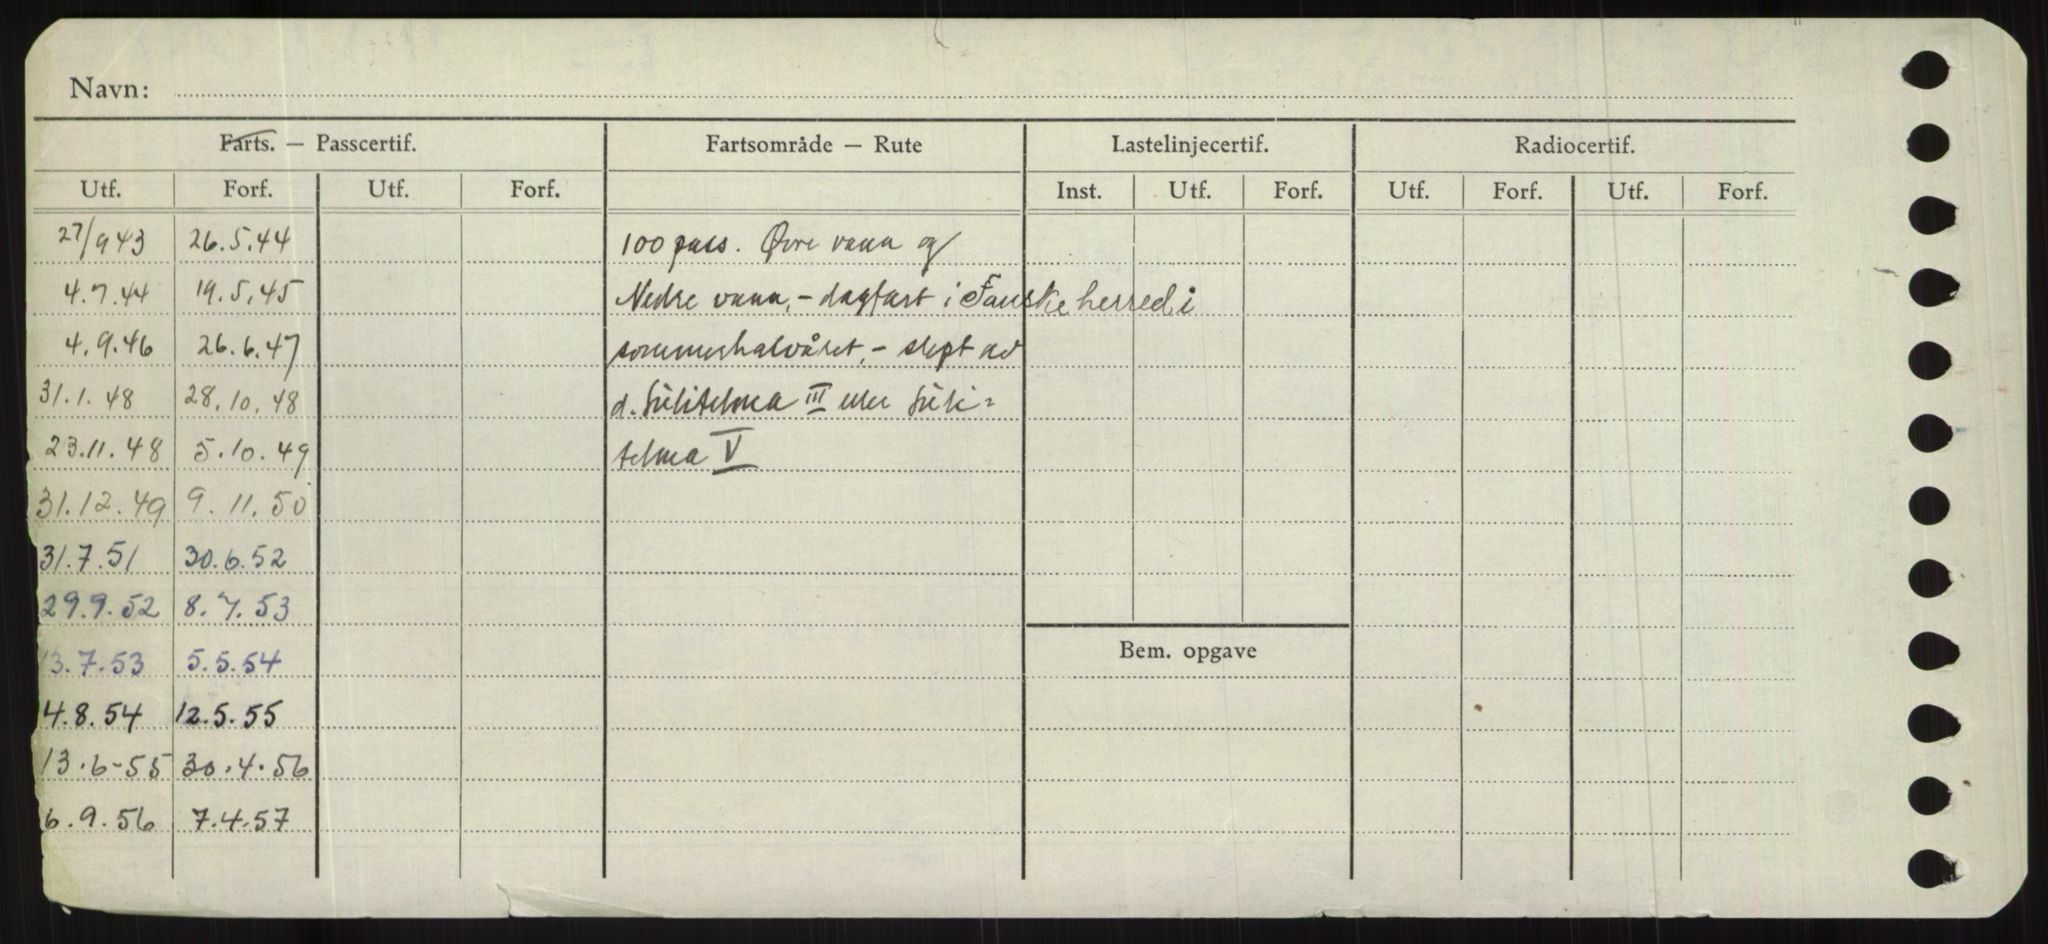 Navn:
Farts. — Passcertif. Fartsområde — Rute Lastelinjecertif. Radiocertif.
Utf. Forf. Utf. Forf. Inst. Utf. Forf. Utf. Forf. Utf. Forf.
27/9 43 26.5.44 100 pass. Øvre vann og
4.7.44 19.5.45 Nedre vann, - dagfart i Fauske herred, i
4.9.46 26.6.47 sommerhalvåret, - slept av
31.1.48 28.10.48 d. Sulitelma III eller Suli=
23.11.48 5.10.49 telma V
31.12.49 9.11.50
31.7.51 30.6.52
29.9.52 8.7.53
13.7.53 5.5.54
Bem. opgave
4.8.54 12.5.55
13.6-55 30.4.56
6.9.56 7.4.57